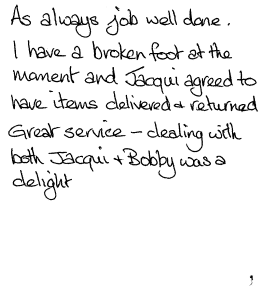 As always job well done.
I have a broken foot at the
moment and Jacqui agreed to
have items delivered & returned
Great service – dealing with
both Jacqui + Bobby was a
delight